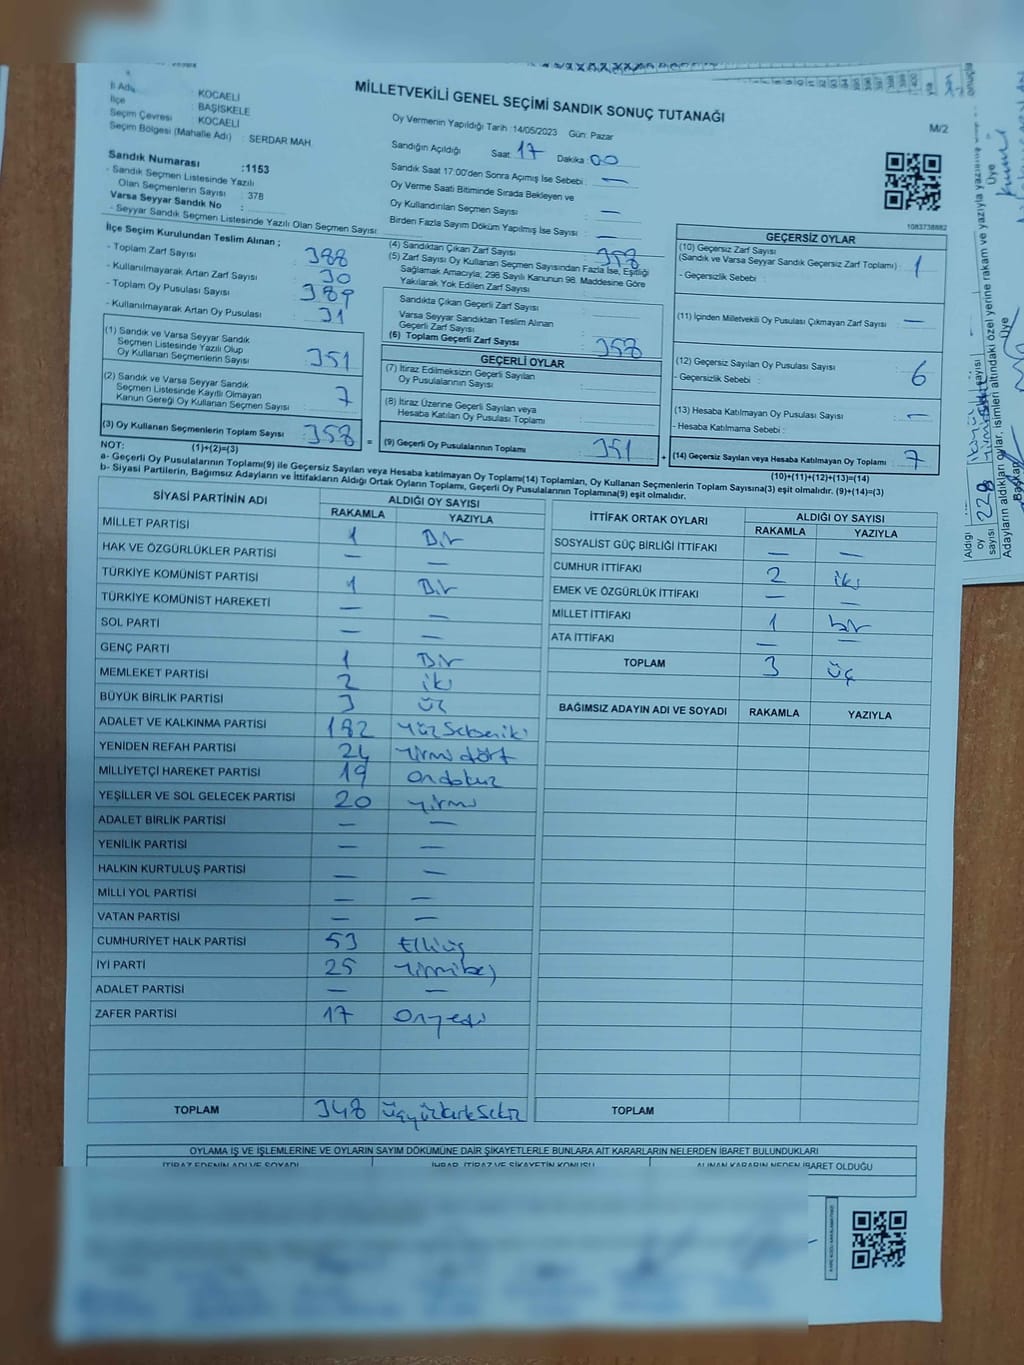 MİLLETVEKİLİ GENEL SEÇİMİ SANDIK SONUÇ TUTANAĞI
M/2
İl Adı : KOCAELİ
İlçe : BAŞİSKELE
Seçim Çevresi : KOCAELİ
Seçim Bölgesi (Mahalle Adı) : SERDAR MAH.
Oy Vermenin Yapıldığı Tarih :14/05/2023 Gün: Pazar
Sandığın Açıldığı Saat 17 Dakika 00
Sandık Saat 17:00'den Sonra Açmış İse Sebebi : —
Oy Verme Saati Bitiminde Sırada Bekleyen ve
Oy Kullandırılan Seçmen Sayısı : —
Birden Fazla Sayım Döküm Yapılmış İse Sayısı : —
Sandık Numarası :1153
- Sandık Seçmen Listesinde Yazılı
Olan Seçmenlerin Sayısı : 378
Varsa Seyyar Sandık No :
- Seyyar Sandık Seçmen Listesinde Yazılı Olan Seçmen Sayısı :
1083738882
İlçe Seçim Kurulundan Teslim Alınan ;
- Toplam Zarf Sayısı : 388
- Kullanılmayarak Artan Zarf Sayısı : 30
- Toplam Oy Pusulası Sayısı : 389
- Kullanılmayarak Artan Oy Pusulası : 31
(1) Sandık ve Varsa Seyyar Sandık
Seçmen Listesinde Yazılı Olup
Oy Kullanan Seçmenlerin Sayısı : 351
(2) Sandık ve Varsa Seyyar Sandık
Seçmen Listesinde Kayıtlı Olmayan
Kanun Gereği Oy Kullanan Seçmen Sayısı : 7
(3) Oy Kullanan Seçmenlerin Toplam Sayısı : 358
(1)+(2)=(3)
(4) Sandıktan Çıkan Zarf Sayısı : 358
(5) Zarf Sayısı Oy Kullanan Seçmen Sayısından Fazla İse, Eşitliği
Sağlamak Amacıyla; 298 Sayılı Kanunun 98. Maddesine Göre
Yakılarak Yok Edilen Zarf Sayısı :
Sandıkta Çıkan Geçerli Zarf Sayısı :
Varsa Seyyar Sandıktan Teslim Alınan
Geçerli Zarf Sayısı :
(6) Toplam Geçerli Zarf Sayısı : 358
GEÇERLİ OYLAR
(7) İtiraz Edilmeksizin Geçerli Sayılan
Oy Pusulalarının Sayısı :
(8) İtiraz Üzerine Geçerli Sayılan veya
Hesaba Katılan Oy Pusulaları Toplamı :
= (9) Geçerli Oy Pusulalarının Toplamı : 351
GEÇERSİZ OYLAR
(10) Geçersiz Zarf Sayısı
(Sandık ve Varsa Seyyar Sandık Geçersiz Zarf Toplamı) : 1
- Geçersizlik Sebebi :
(11) İçinden Milletvekili Oy Pusulası Çıkmayan Zarf Sayısı : —
(12) Geçersiz Sayılan Oy Pusulası Sayısı : 6
- Geçersizlik Sebebi :
(13) Hesaba Katılmayan Oy Pusulası Sayısı : —
- Hesaba Katılmama Sebebi :
+ (14) Geçersiz Sayılan veya Hesaba Katılmayan Oy Toplamı : 7
(10)+(11)+(12)+(13)=(14)
NOT:
a- Geçerli Oy Pusulalarının Toplamı(9) ile Geçersiz Sayılan veya Hesaba katılmayan Oy Toplamı(14) Toplamları, Oy Kullanan Seçmenlerin Toplam Sayısına(3) eşit olmalıdır. (9)+(14)=(3)
b- Siyasi Partilerin, Bağımsız Adayların ve İttifakların Aldığı Ortak Oyların Toplamı, Geçerli Oy Pusulalarının Toplamına(9) eşit olmalıdır.
SİYASİ PARTİNİN ADI ALDIĞI OY SAYISI
RAKAMLA YAZIYLA
MİLLET PARTİSİ 1 Bir
HAK VE ÖZGÜRLÜKLER PARTİSİ — —
TÜRKİYE KOMÜNİST PARTİSİ 1 Bir
TÜRKİYE KOMÜNİST HAREKETİ — —
SOL PARTİ — —
GENÇ PARTİ 1 Bir
MEMLEKET PARTİSİ 2 iki
BÜYÜK BİRLİK PARTİSİ 3 üç
ADALET VE KALKINMA PARTİSİ 182 Yüz Seksen iki
YENİDEN REFAH PARTİSİ 24 Yirmi dört
MİLLİYETÇİ HAREKET PARTİSİ 19 Ondokuz
YEŞİLLER VE SOL GELECEK PARTİSİ 20 yirmi
ADALET BİRLİK PARTİSİ — —
YENİLİK PARTİSİ — —
HALKIN KURTULUŞ PARTİSİ — —
MİLLİ YOL PARTİSİ — —
VATAN PARTİSİ — —
CUMHURİYET HALK PARTİSİ 53 Elliüç
İYİ PARTİ 25 Yirmibeş
ADALET PARTİSİ — —
ZAFER PARTİSİ 17 Onyedi
TOPLAM 348 üçyüzkırkSekiz
İTTİFAK ORTAK OYLARI ALDIĞI OY SAYISI
RAKAMLA YAZIYLA
SOSYALİST GÜÇ BİRLİĞİ İTTİFAKI — —
CUMHUR İTTİFAKI 2 iki
EMEK VE ÖZGÜRLÜK İTTİFAKI — —
MİLLET İTTİFAKI 1 bir
ATA İTTİFAKI — —
TOPLAM 3 üç
BAĞIMSIZ ADAYIN ADI VE SOYADI RAKAMLA YAZIYLA
TOPLAM
OYLAMA İŞ VE İŞLEMLERİNE VE OYLARIN SAYIM DÖKÜMÜNE DAİR ŞİKAYETLERLE BUNLARA AİT KARARLARIN NELERDEN İBARET BULUNDUKLARI
İTİRAZ EDENİN ADI VE SOYADI İHBAR, İTİRAZ VE ŞİKAYETİN KONUSU ALINAN KARARIN NEDEN İBARET OLDUĞU
Aldığı
oy
sayısı 228
Adayların aldıkları oylar, isimleri altındaki özel yerine rakam ve yazıyla
Başkan
Üye
Üye